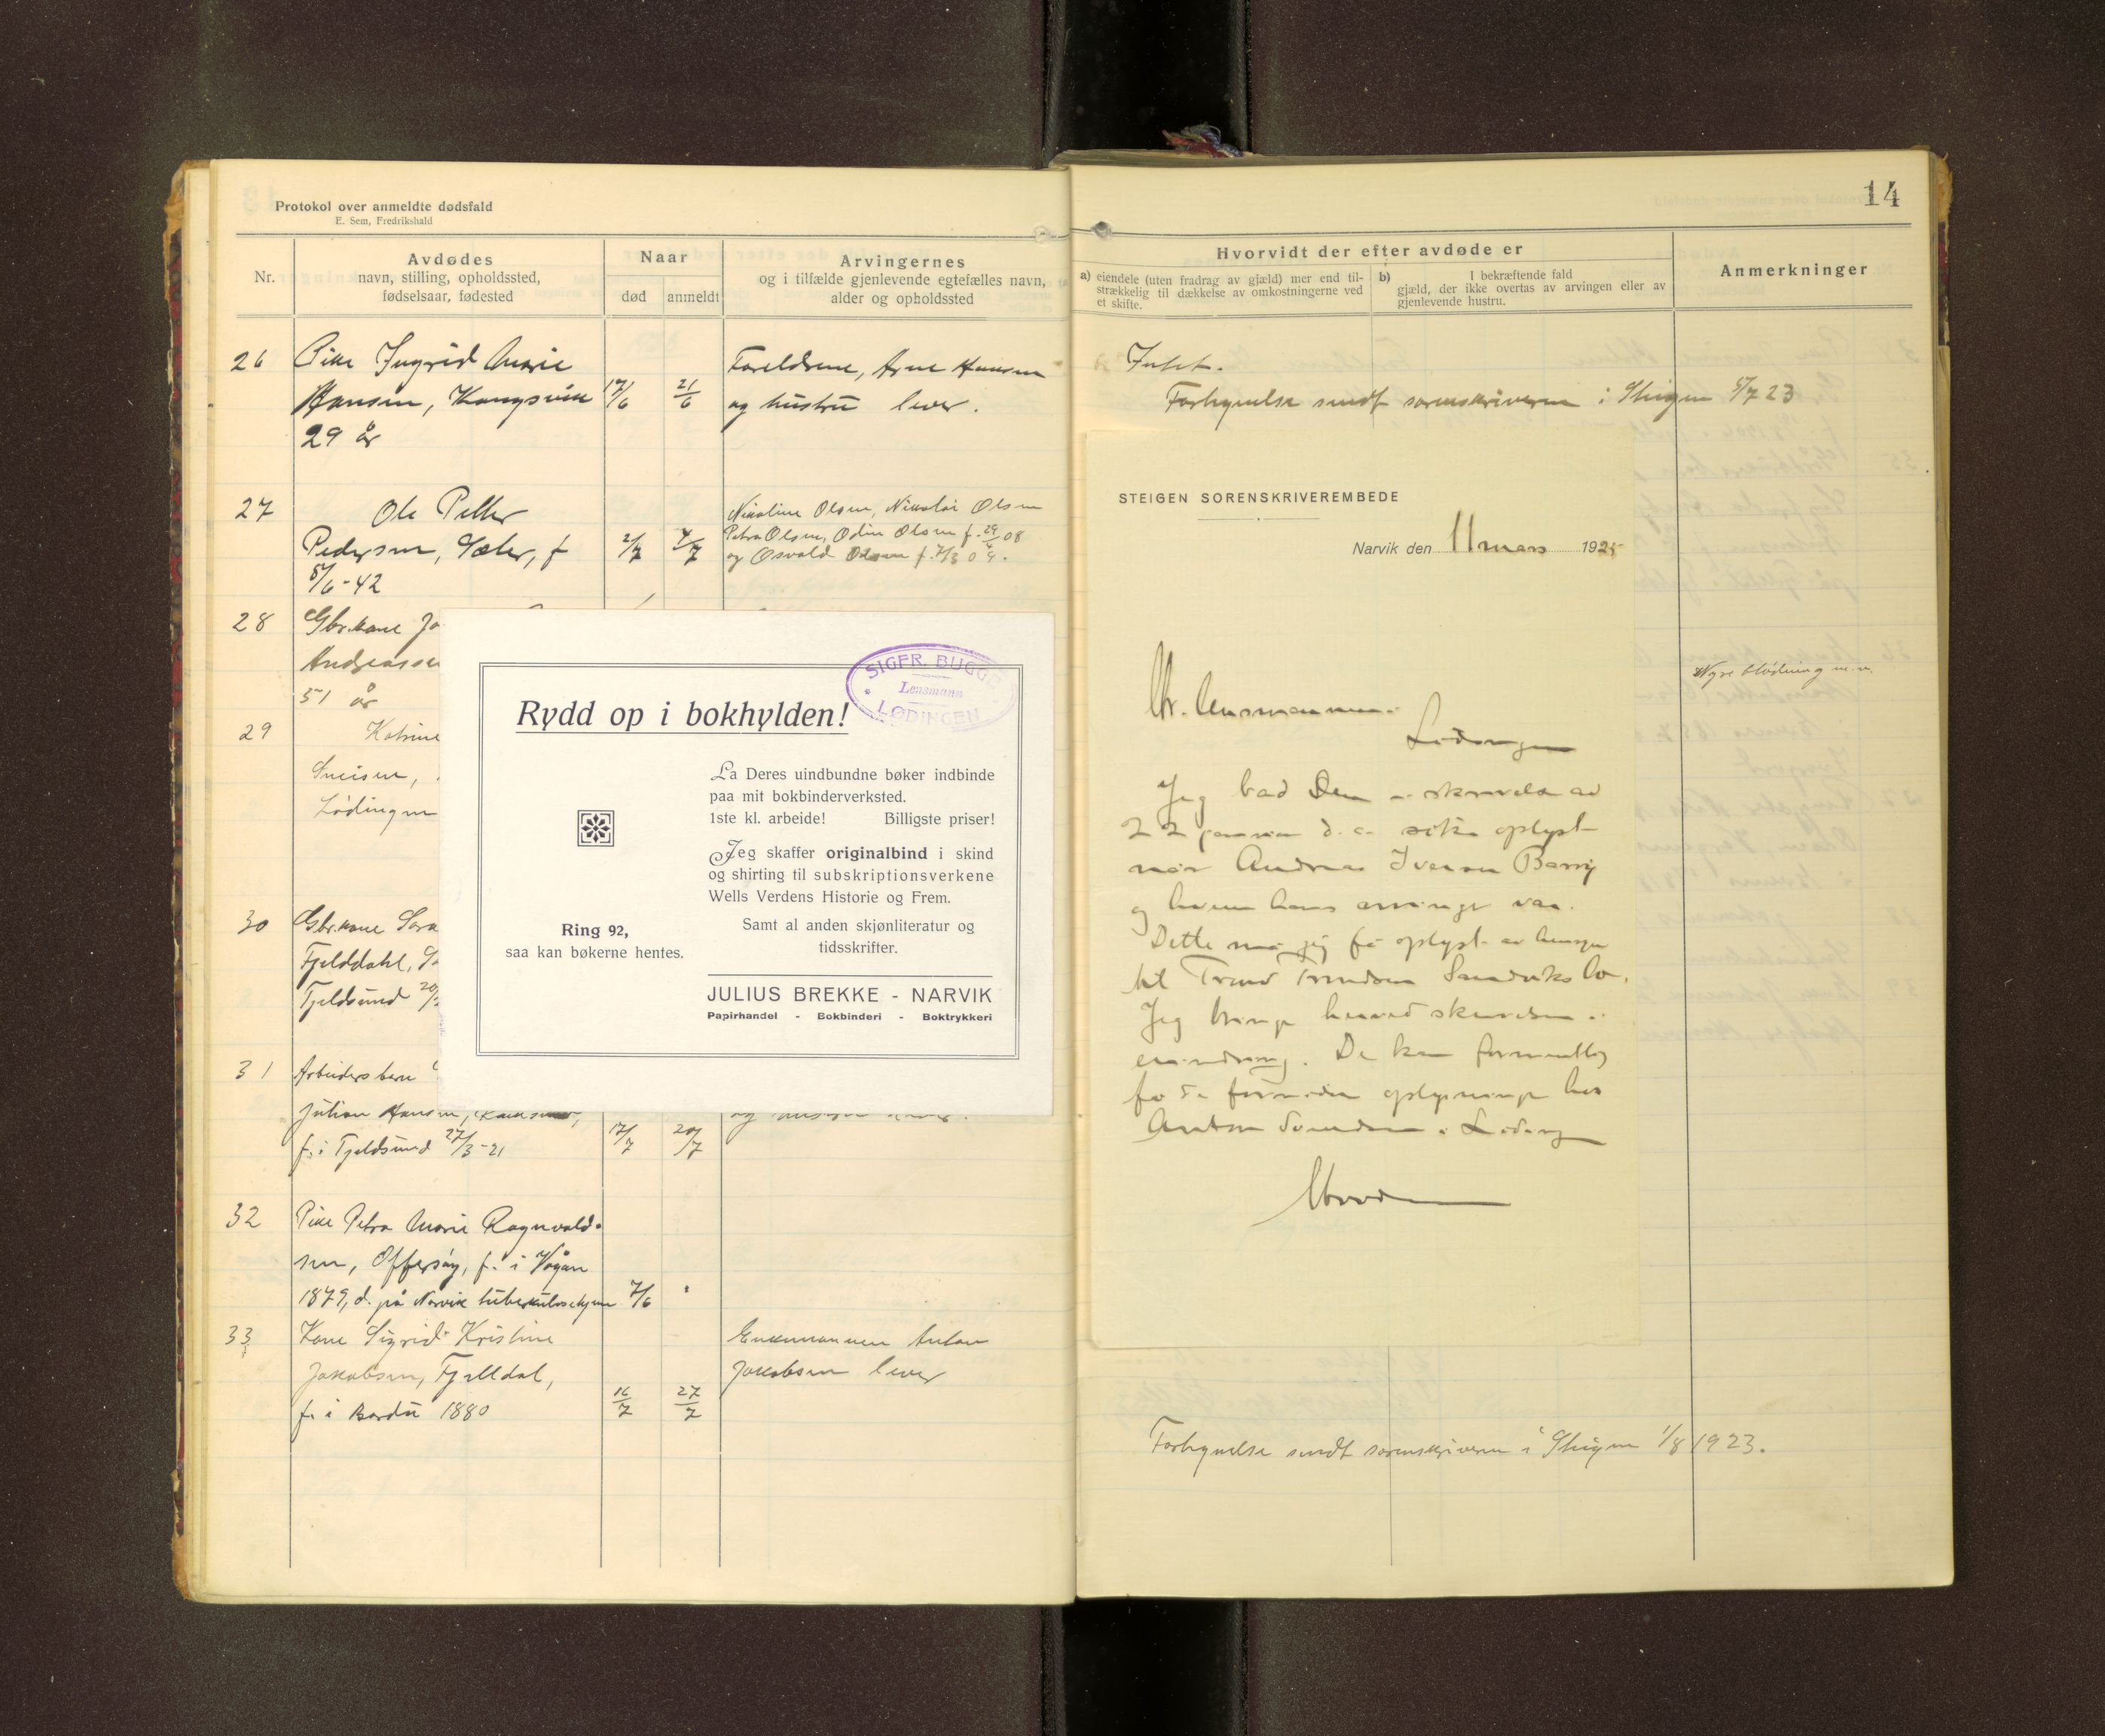 Protokol over anmeldte dødsfald
E. Sem, Fredrikshald
Nr.
Avdødes
navn, stilling, opholdssted,
fødselsaar, fødested
Naar
død
anmeldt
Arvingernes
og i tilfælde gjenlevende egtefælles navn,
alder og opholdssted
26
Pike Ingrid Marie
Hansen, Kongsvik
29 år
17/6
21/6
Foreldrene, Arne Hansen
og hustru lever.
27
Ole Petter
Pedersen, Sæter, f
5/6-42
2/7
4/7
Nikoline Olsen, Nikolai Olsen
Petra Olsen, Odin Olsen f. 29/4 08
og Osvald Olsen f. 7/3 04.
28
Gbr.kone Jo
Andreasse
51 år
29
Katrine
Lødingen
30
Gbr.kone Sara
Fjelddahl,
Tjeldsund 20/
31
Arbeiders barn
Julian Hansen,
f. i Tjeldsund 27/3-21
17/7
20/7
32
Pike Petra Marie Ragnvald-
sen, Offersøy, f. i Vågan
1879, d. på Narvik tuberkulosehjem
7/6
"
33
Kone Sigrid Kristine
Jakobsen, Fjelldal,
f. i Bardu 1880
16/7
27/7
Enkemannen Anton
Jakobsen lever
SIGFR. BUGGE
Lensmann
LØDINGEN
Rydd op i bokhylden!
La Deres uindbundne bøker indbinde
paa mit bokbinderverksted.
1ste kl. arbeide! Billigste priser!
Jeg skaffer originalbind i skind
og shirting til subskriptionsverkene
Wells Verdens Historie og Frem.
Samt al anden skjønliteratur og
tidsskrifter.
Ring 92,
saa kan bøkerne hentes.
JULIUS BREKKE - NARVIK
Papirhandel - Bokbinderi - Boktrykkeri
14
Hvorvidt der efter avdøde er
a) eiendele (uten fradrag av gjæld) mer end til-
strækkelig til dækkelse av omkostningerne ved
et skifte.
b) I bekræftende fald
gjæld, der ikke overtas av arvingen eller av
gjenlevende hustru.
Anmerkninger
Intet.
Fortegnelse sendt sorenskriveren i Steigen 5/7 23
STEIGEN SORENSKRIVEREMBEDE
Narvik den 11 mars 1925
Hr. lensmannen
Lødingen
Jeg bad Dem i skrivelse av
22 januar d. a. søke oplyst
når Andreas Iversen Barøy
og hvem hans arvinger var.
Dette må jeg få oplyst av hensyn
til Trond Trondsen
Jeg bringer herved skrivelsen i
erindring. De kan formentlig
få de fornødne oplysninger hos
Anton i Lødingen
Nyreblødning m.m.
Fortegnelse sendt sorenskriveren i Steigen 1/8 1923.